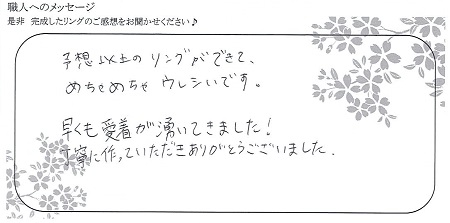 職人へのメッセージ
是非 完成したリングのご感想をお聞かせください♪
予想以上のリングができて、
めちゃめちゃウレシいです。
早くも愛着が湧いてきました！
丁寧に作っていただきありがとうございました.